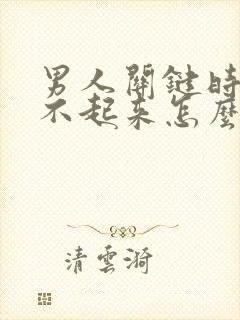 男人關鍵時
不起來怎麼
清雲漪